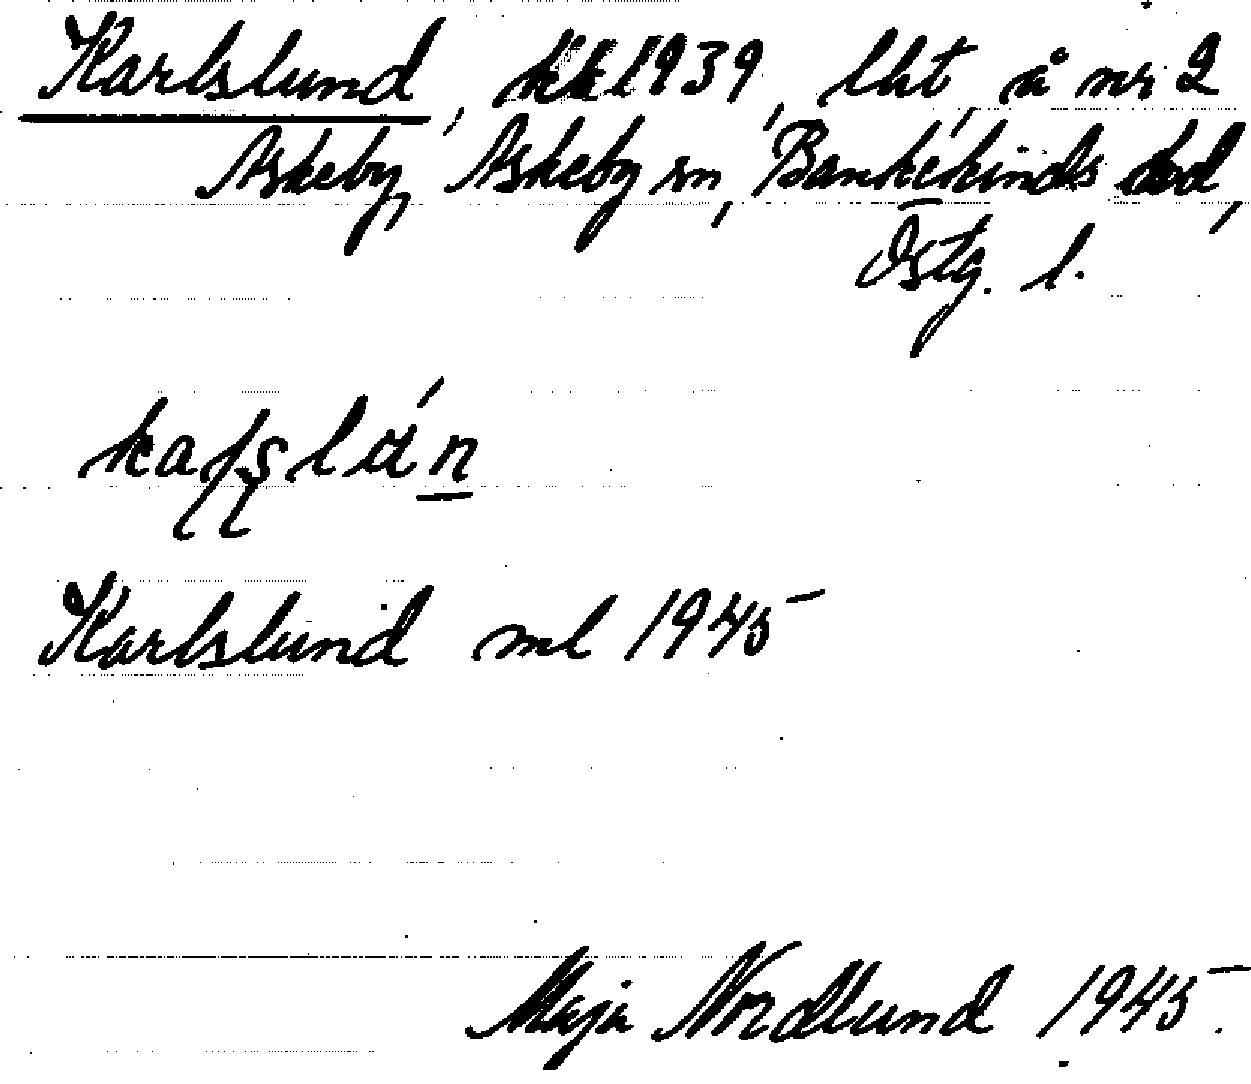 Karlslund, kk 1939, lht, å nr 2
Askeby, Askeby sn, Bankekinds hd,
Östg. l.
Karlslund ml 1945
Maja Nordlund 1945.